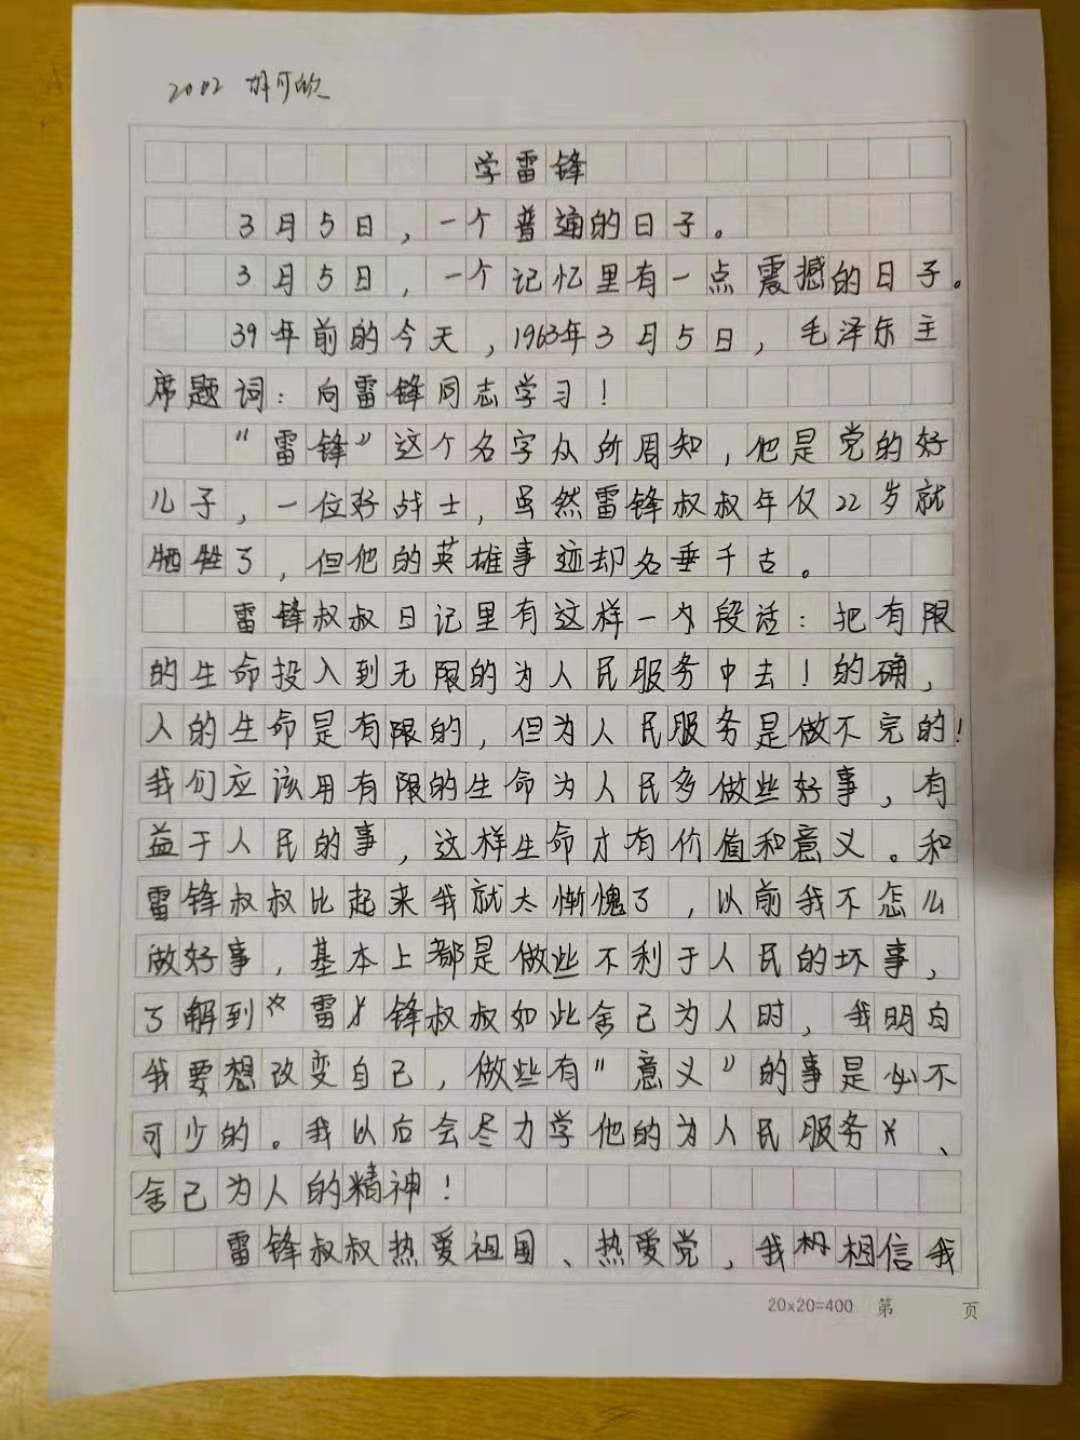 2002 胡可欣
学雷锋
3月5日，一个普通的日子。
3月5日，一个记忆里有一点震撼的日子。
39年前的今天，1963年3月5日，毛泽东主
席题词：向雷锋同志学习！
“雷锋”这个名字众所周知，他是党的好
儿子，一位好战士，虽然雷锋叔叔年仅22岁就
牺牲了，但他的英雄事迹却名垂千古。
雷锋叔叔日记里有这样一段话：把有限
的生命投入到无限的为人民服务中去！的确，
人的生命是有限的，但为人民服务是做不完的！
我们应该用有限的生命为人民多做些好事，有
益于人民的事，这样生命才有价值和意义。和
雷锋叔叔比起来我就太惭愧了，以前我不怎么
做好事，基本上都是做些不利于人民的坏事，
了解到雷锋叔叔如此舍己为人时，我明白
我要想改变自己，做些有“意义”的事是必不
可少的。我以后会尽力学他的为人民服务、
舍己为人的精神！
雷锋叔叔热爱祖国、热爱党，我相信我
20×20=400 第 页